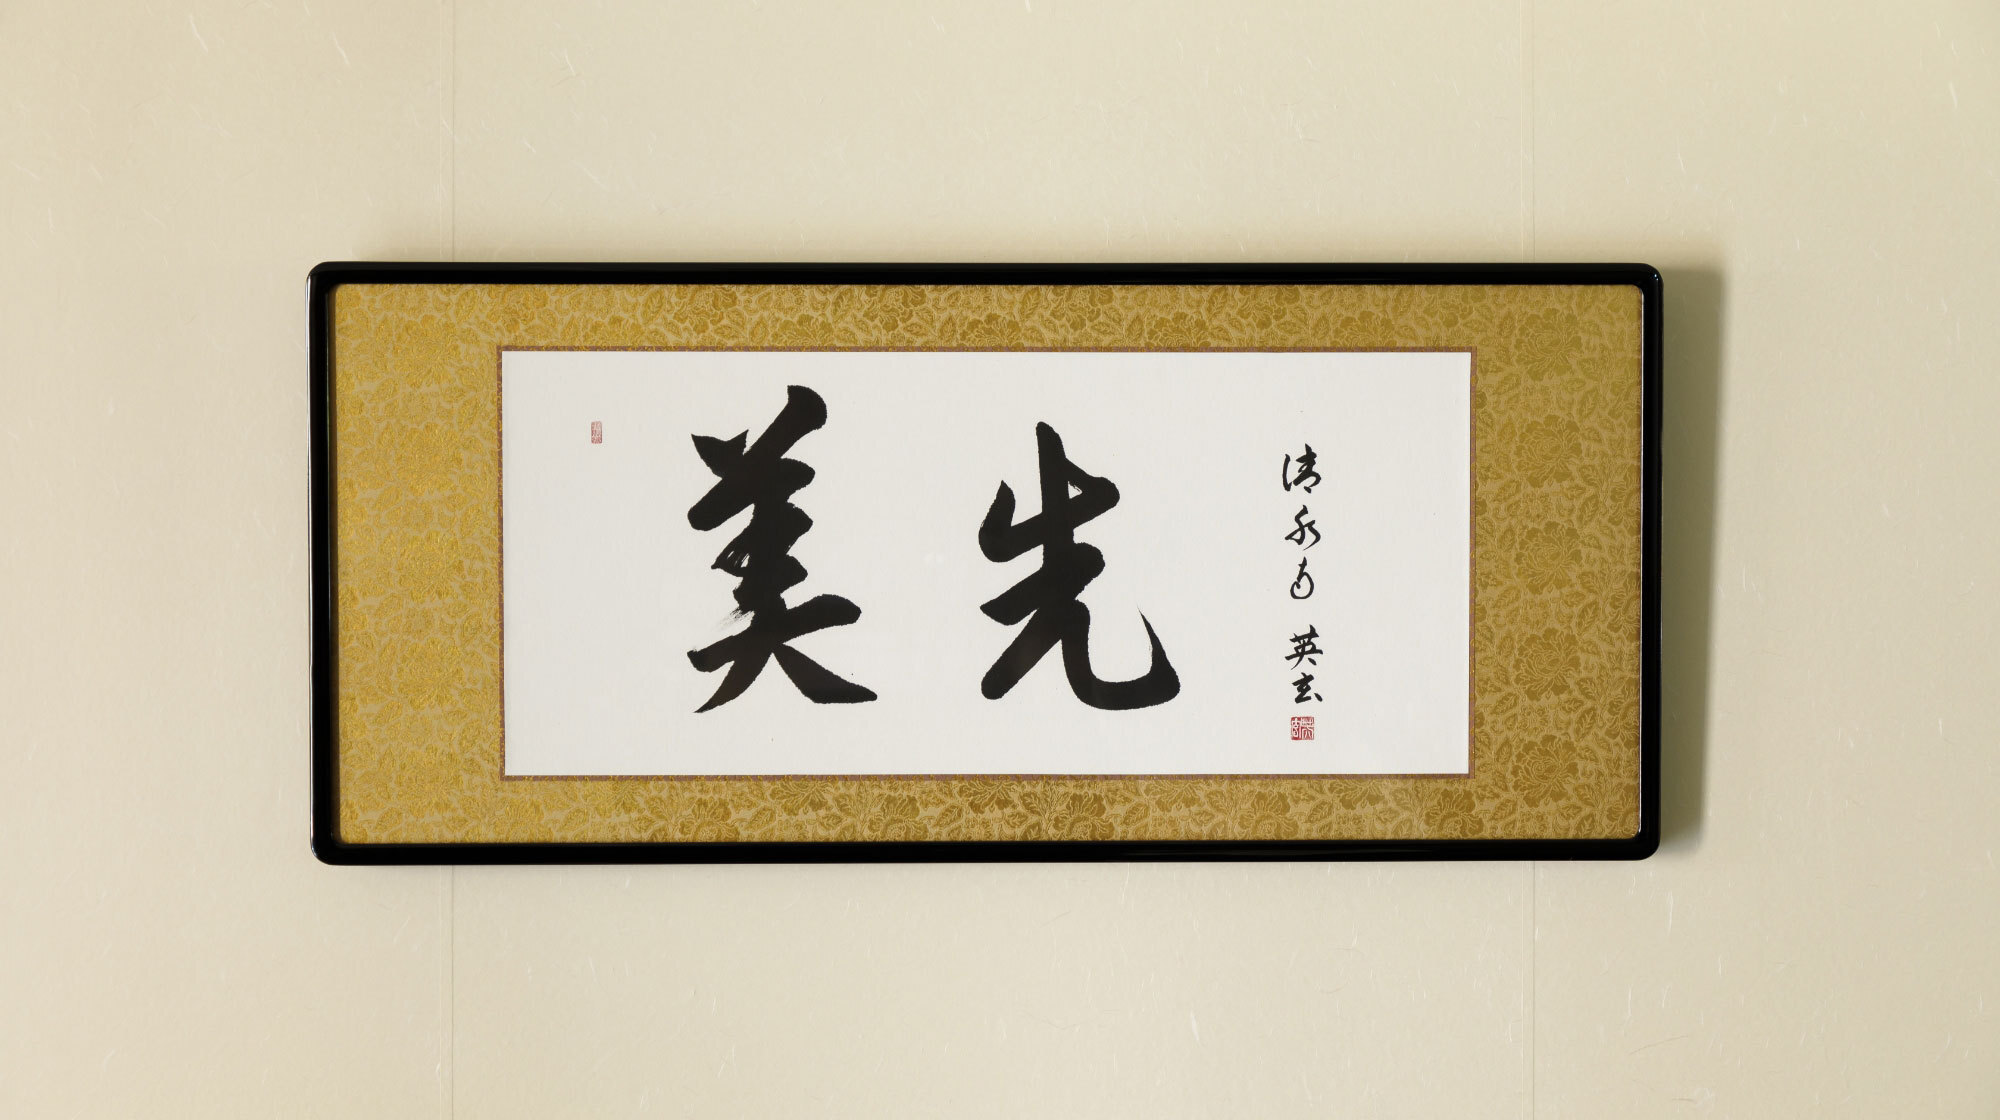 美先
清水寺 英玄